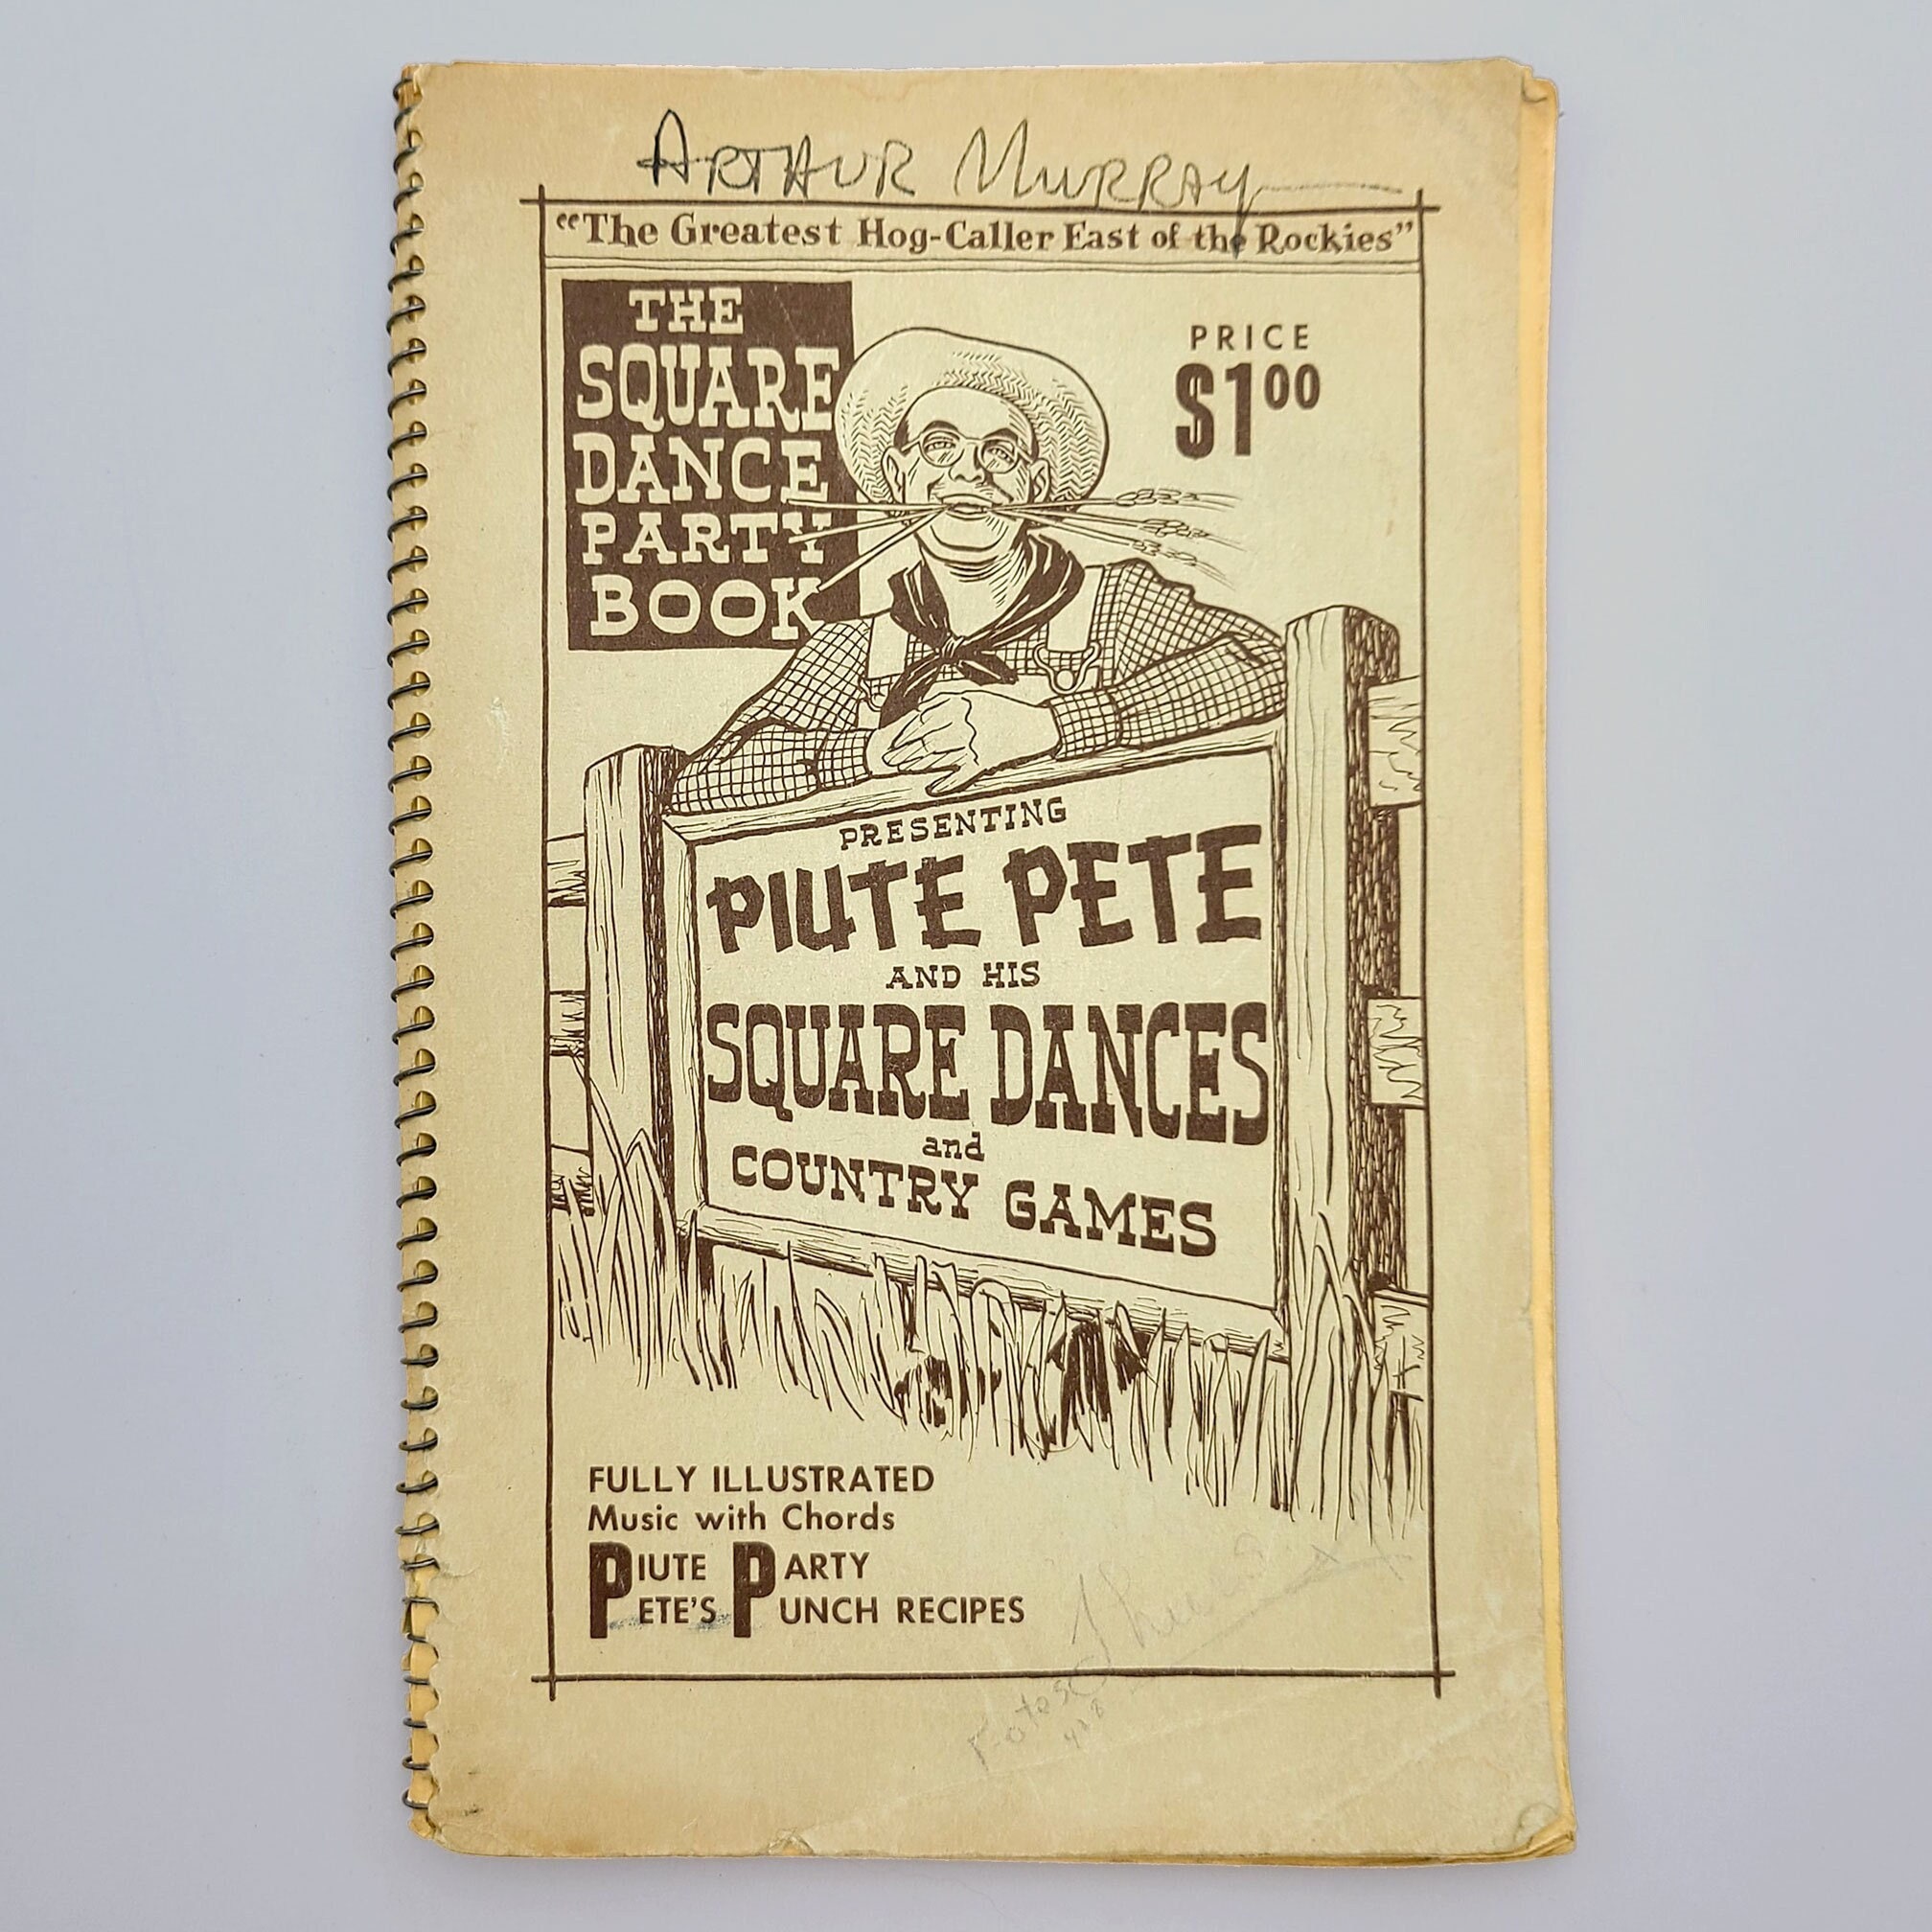 ARTHUR MURRAY
"The Greatest Hog-Caller East of the Rockies"
THE
SQUARE
DANCE
PARTY
BOOK
PRICE
$100
PRESENTING
PIUTE PETE
AND HIS
SQUARE DANCES
and
COUNTRY GAMES
FULLY ILLUSTRATED
Music with Chords
PIUTE PARTY
PETE'S PUNCH RECIPES